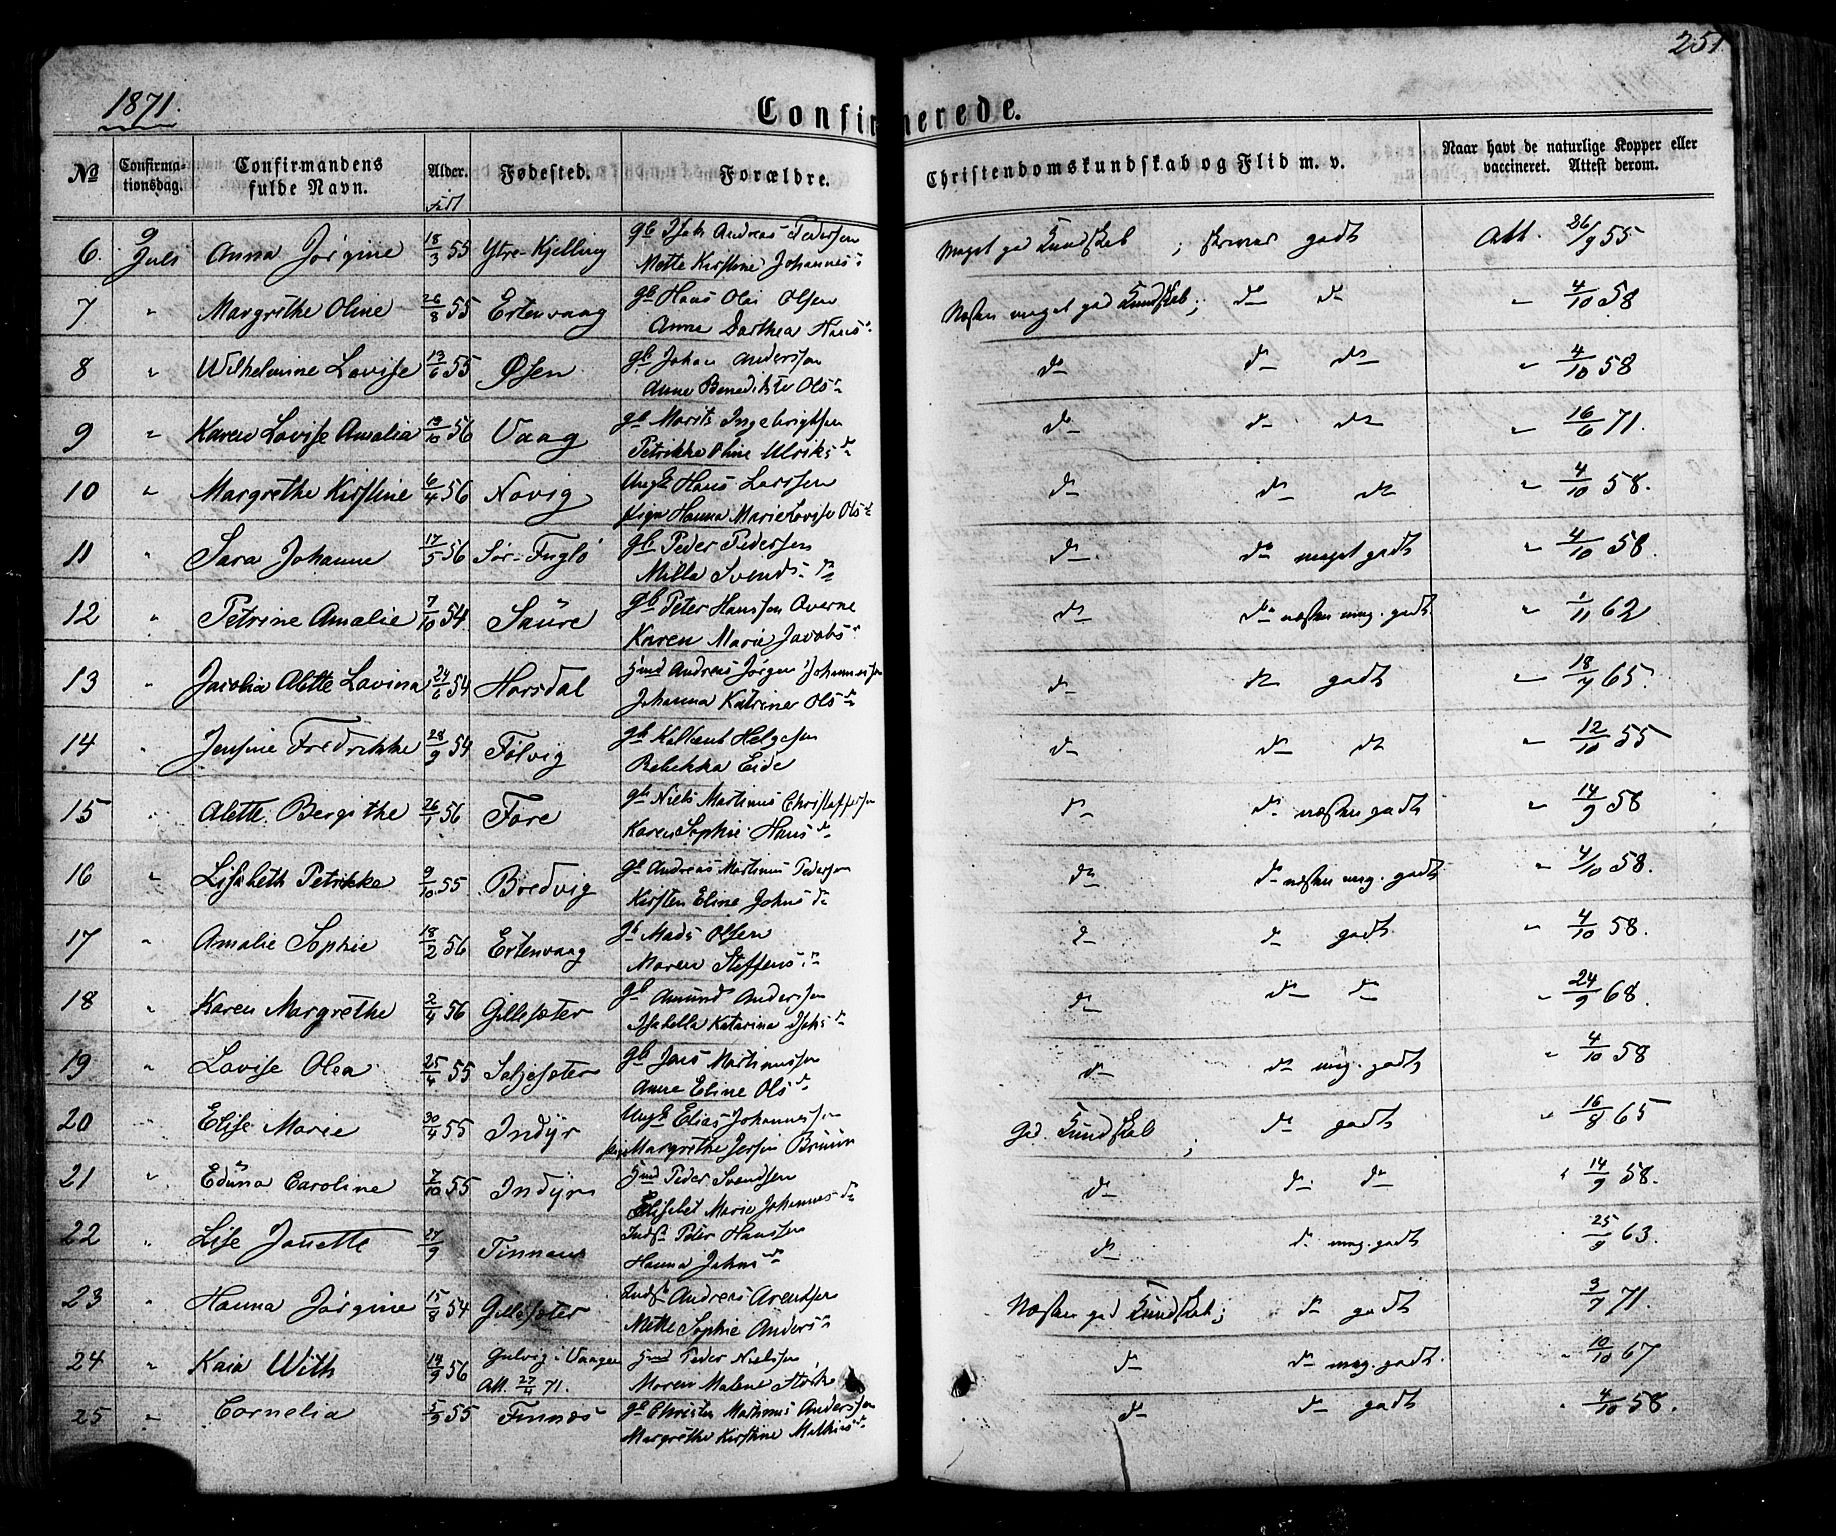 251
1871.
Confirmerede.
No
Confirma-
tionsdag.
Confirmandens
fulde Navn.
Alder.
Fødested.
Forældre.
Christendomskundskab og Flid m. v.
Naar havt de naturlige Kopper eller
vaccineret. Attest derom.
Født
6. 9 Juli Anna Jørgine 18/3 55 Ytre-Kjelling gb Isak Andreas Pedersen Meget god Kundskab ; skriver godt Att. 26/9 55
Mette Kirstine Johannes
7 " Margrethe Oline 26/8 55 Ertenvaag gb Hans Olai Olsen Næsten meget god Kundskab; do do " 4/10 58
Anne Dorthea Hans
8 " Wilhelmine Lovise 13/6 55 Øsen gb Johan Andersen do do do " 4/10 58
Anne Benedikte Ols
9 " Karen Lovise Amalia 13/10 56 Vaag gb Morits Ingebrigtsen do do do " 16/6 71.
Petrikke Oline Ulriks d
10 " Margrethe Kirstine 6/4 56 Novig Ungk Hans Larsen do do do " 4/10 58.
Pigen Hanna Marie Lovise Ols d
11 " Sara Johanne 17/5 56 Sør-Fuglø gb Peder Pedersen do do meget godt " 4/10 58.
Milla Svends d
12 " Petrine Amalie 7/10 54. Saure gb Peter Hansen Overne do do næsten meg. godt " 1/11 62
Karen Marie Jacobs
13 " Jacobia Alette Lavina 24/6 54 Horsdal Hmd Andreas Jørgen Johannesen do do godt " 18/7 65.
Johanna Katrine Ols d
14 " Jensine Fredrikke 28/9 54 Følvig gb Helgesen do do do " 12/10 55
Rebekka Eide
15 " Alette Bergithe 26/1 56 Fore gb Niels Martinus Christoffersen do do næsten godt " 14/9 58
Karen Sophie Hans d
16 " Lisabeth Petrikke 9/10 55 Bredvig gb Andreas Martinus Pedersen do do næsten meg. godt " 4/10 58.
Kirsten Eline Johns d
17 " Amalie Sophie 18/2 56 Ertenvaag gb Mads Olsen do do godt " 4/10 58.
Maren Steffens d
18 " Karen Margrethe 2/4 56 Gillesæter gb Amund Andersen do do do " 24/9 68.
Isabella Katarina Isaks d
19 " Lovise Olea 25/4 55 Seljesæter gb Jens Martinussen do do meg. godt " 4/10 58
Anne Eline Ols d
20 " Elise Marie 30/4 55 Indyr Ungk Elias Johannesen God Kundskab ; do godt " 16/8 65
Margrethe Bruun
21 " Eduna Caroline 7/10 55 Indyr Hmd Peder Svendsen do do do " 14/9 58.
Elisabet Marie Johannes d
22 " Lise Jonette 27/9 Finnæs Inds Peter Hansen do do meg. godt 25/9 63.
Hanna Johns d
23 " Hanna Jørgine 15/8 54 Gillesæter Inds Andreas Arentsen Næsten god Kundskab; do godt 3/7 71.
Mette Sophie Anders
24 " Kaia With 14/9 56 Gulvig i Vaagen Hmd Peder Nielsen do do meg. godt. " 10/10 67
Att. 27/4 71. Maren Malene
25 " Cornelia 5/9 55 Finnæs gb Christen Martinus Andersen do do godt " 4/10 58.
Margrethe Kirstine Mathias d